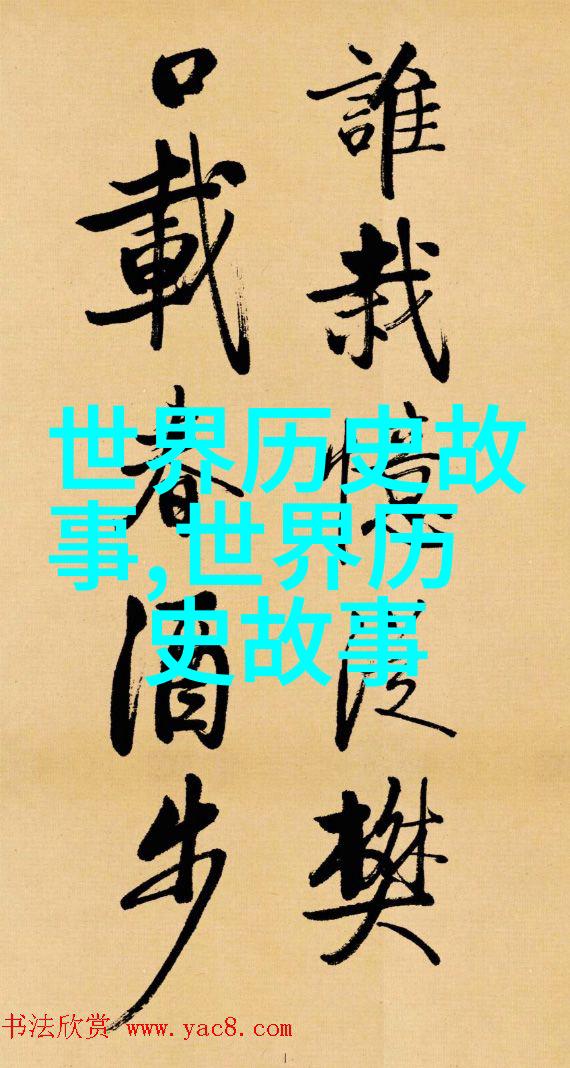 誰栽憶後樊
口載春酒步
世界历史故
事,世界历
史故事
书法欣赏 www.yac8.com